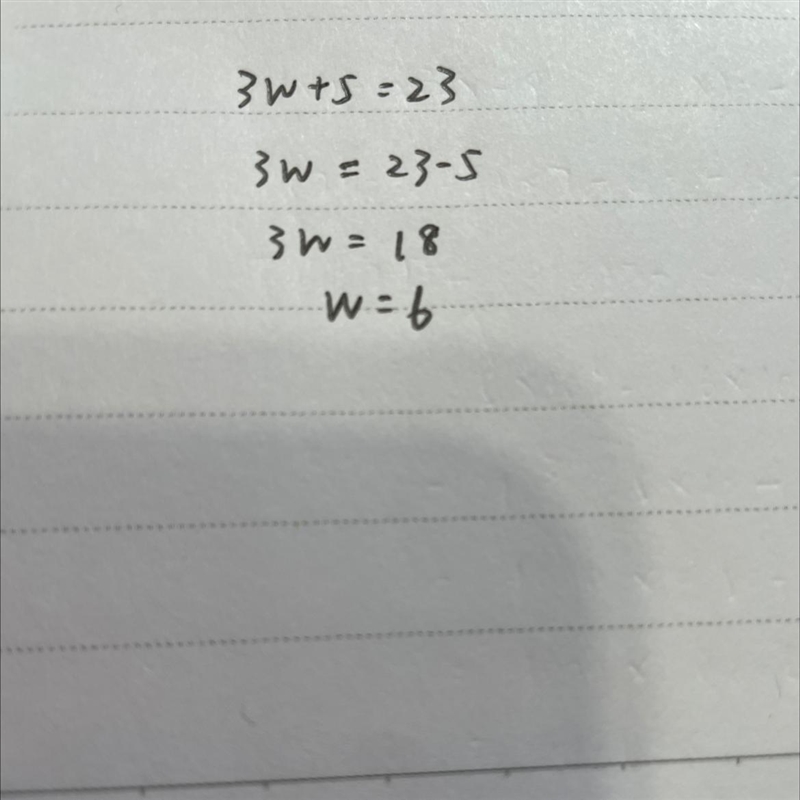 3w+5=23
3w = 23-5
3w = 18
w = 6